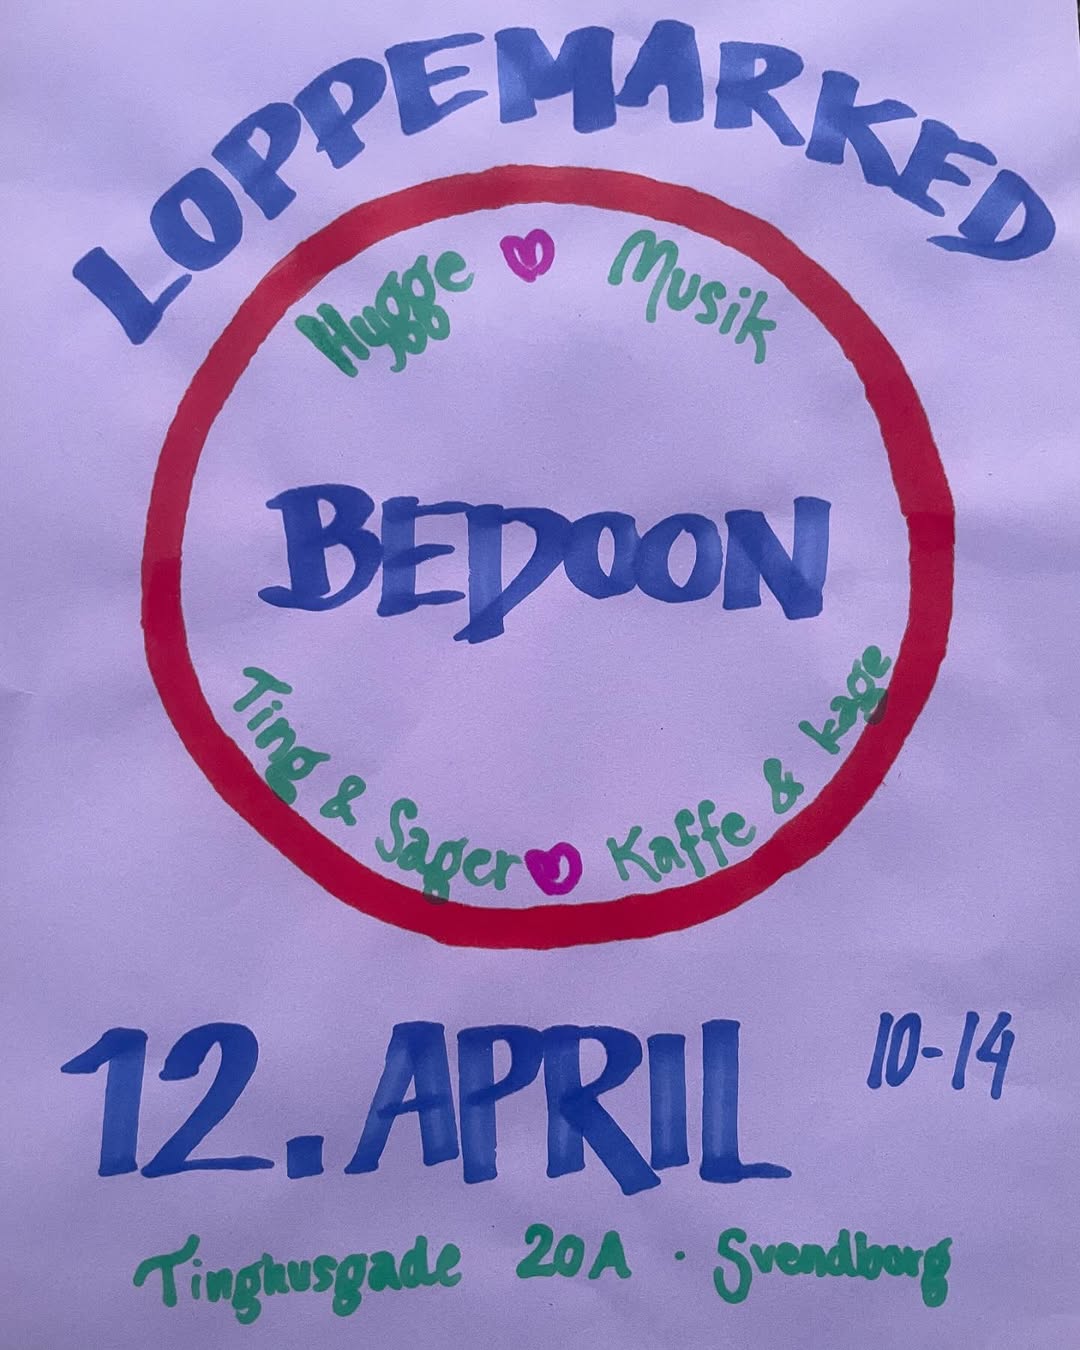 LOPPEMARKED
Hygge Musik
BEDOON
Ting & Sager Kaffe & kage
12. APRIL 10-14
Tinghusgade 20A · Svendborg